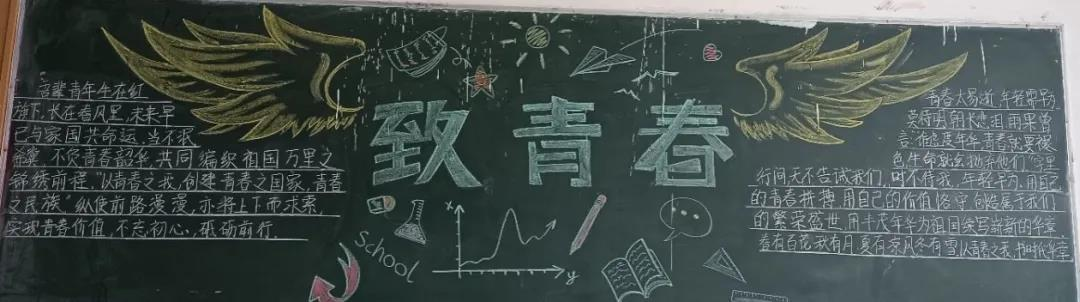 吾辈青年生在红
旗下,长在春风里,未来早
已与家国共命运,当不忘
不负青春韶华,共同编织祖国万里之
锦绣前程,"以青春之我,创建青春之国家,青春
之民族"纵使前路漫漫,亦将上下而求索,
实现青春价值,不忘初心,砥砺前行.
致青春
School
x
y
青春太易逝,年轻需早力
雨果曾
言:谁虚度年华,青春就要褪
色,生命就会抛弃他们"字里
行间无不告诫我们,时不待我,年轻早力,用自己
的青春拼搏,用自己的价值,属于我们
的繁荣盛世,用丰茂年华为祖国续写崭新的华章.
春有百花秋有月,夏有凉风冬有雪,以青春之我,书时代华章